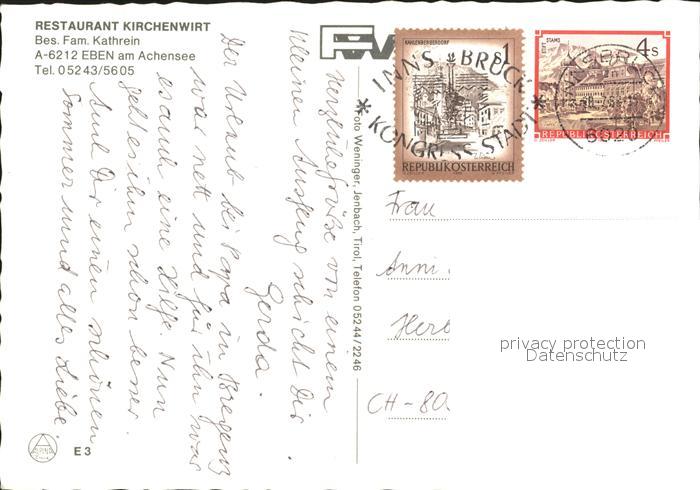 RESTAURANT KIRCHENWIRT
Bes. Fam. Kathrein
A-6212 EBEN am Achensee
Tel. 05243/5605
Herzliche Grüße von einem
kleinen Ausflug schickt Dir
Gerda.
Der Urlaub bei Papa in Bregenz
war nett und für ihn war
es auch eine Hilfe. Nun
geht es ihm schon besser.
Auch Dir einen schönen
Sommer und alles Liebe.
E 3
Foto Weninger, Jenbach, Tirol, Telefon 05244/2246
KAHLENBERGERDORF
S 1
REPUBLIK ÖSTERREICH
INNSBRUCK
* KONGRESS-STADT *
STIFT STAMS
4 S
REPUBLIK ÖSTERREICH
Frau
Anni
Herb
CH-80
privacy protection
Datenschutz